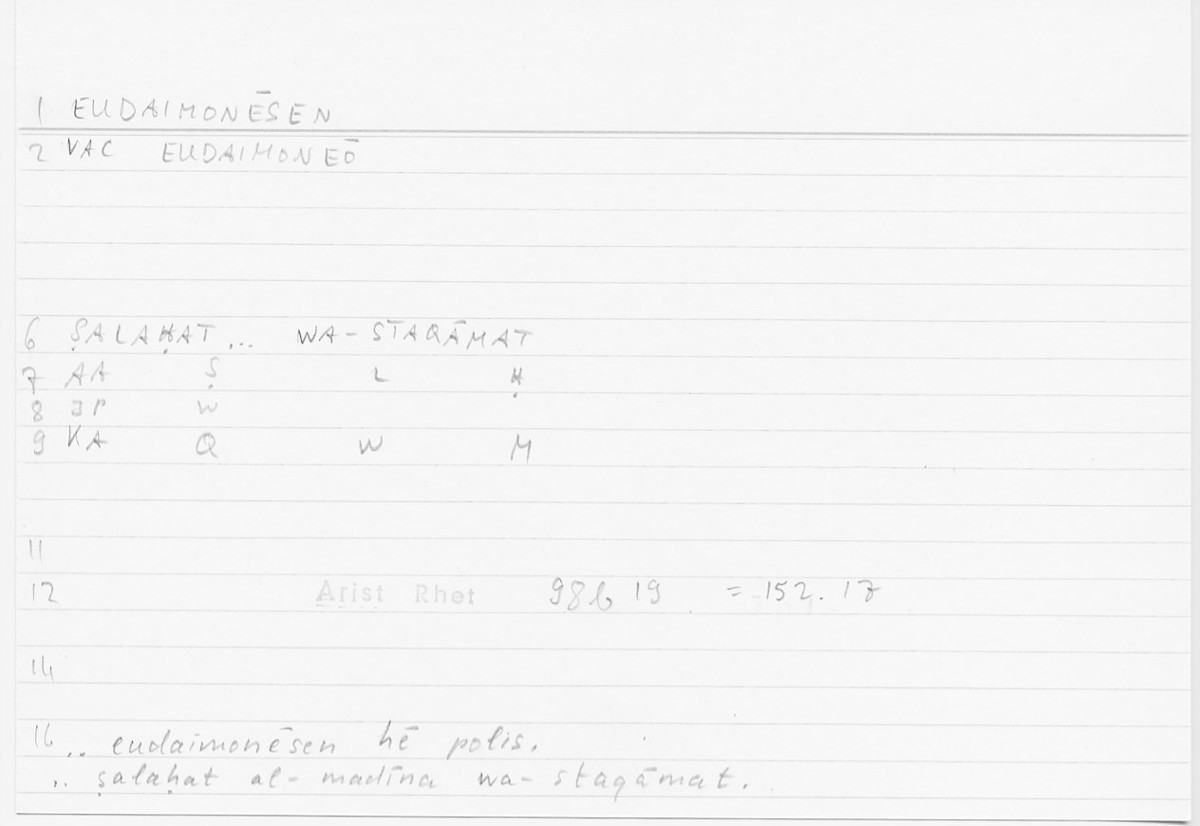 1 EUDAIMONĒSEN
2 VAC EUDAIMONEŌ
6 ṢALAḤAT ... WA-STAQĀMAT
7 AA Ṣ L Ḥ
8 JP W
9 KA Q W M
11
12 Arist Rhet 98b 19 = 152.17
14
16 .. eudaimonēsen hē polis.
.. ṣalaḥat al-madīna wa-staqāmat.